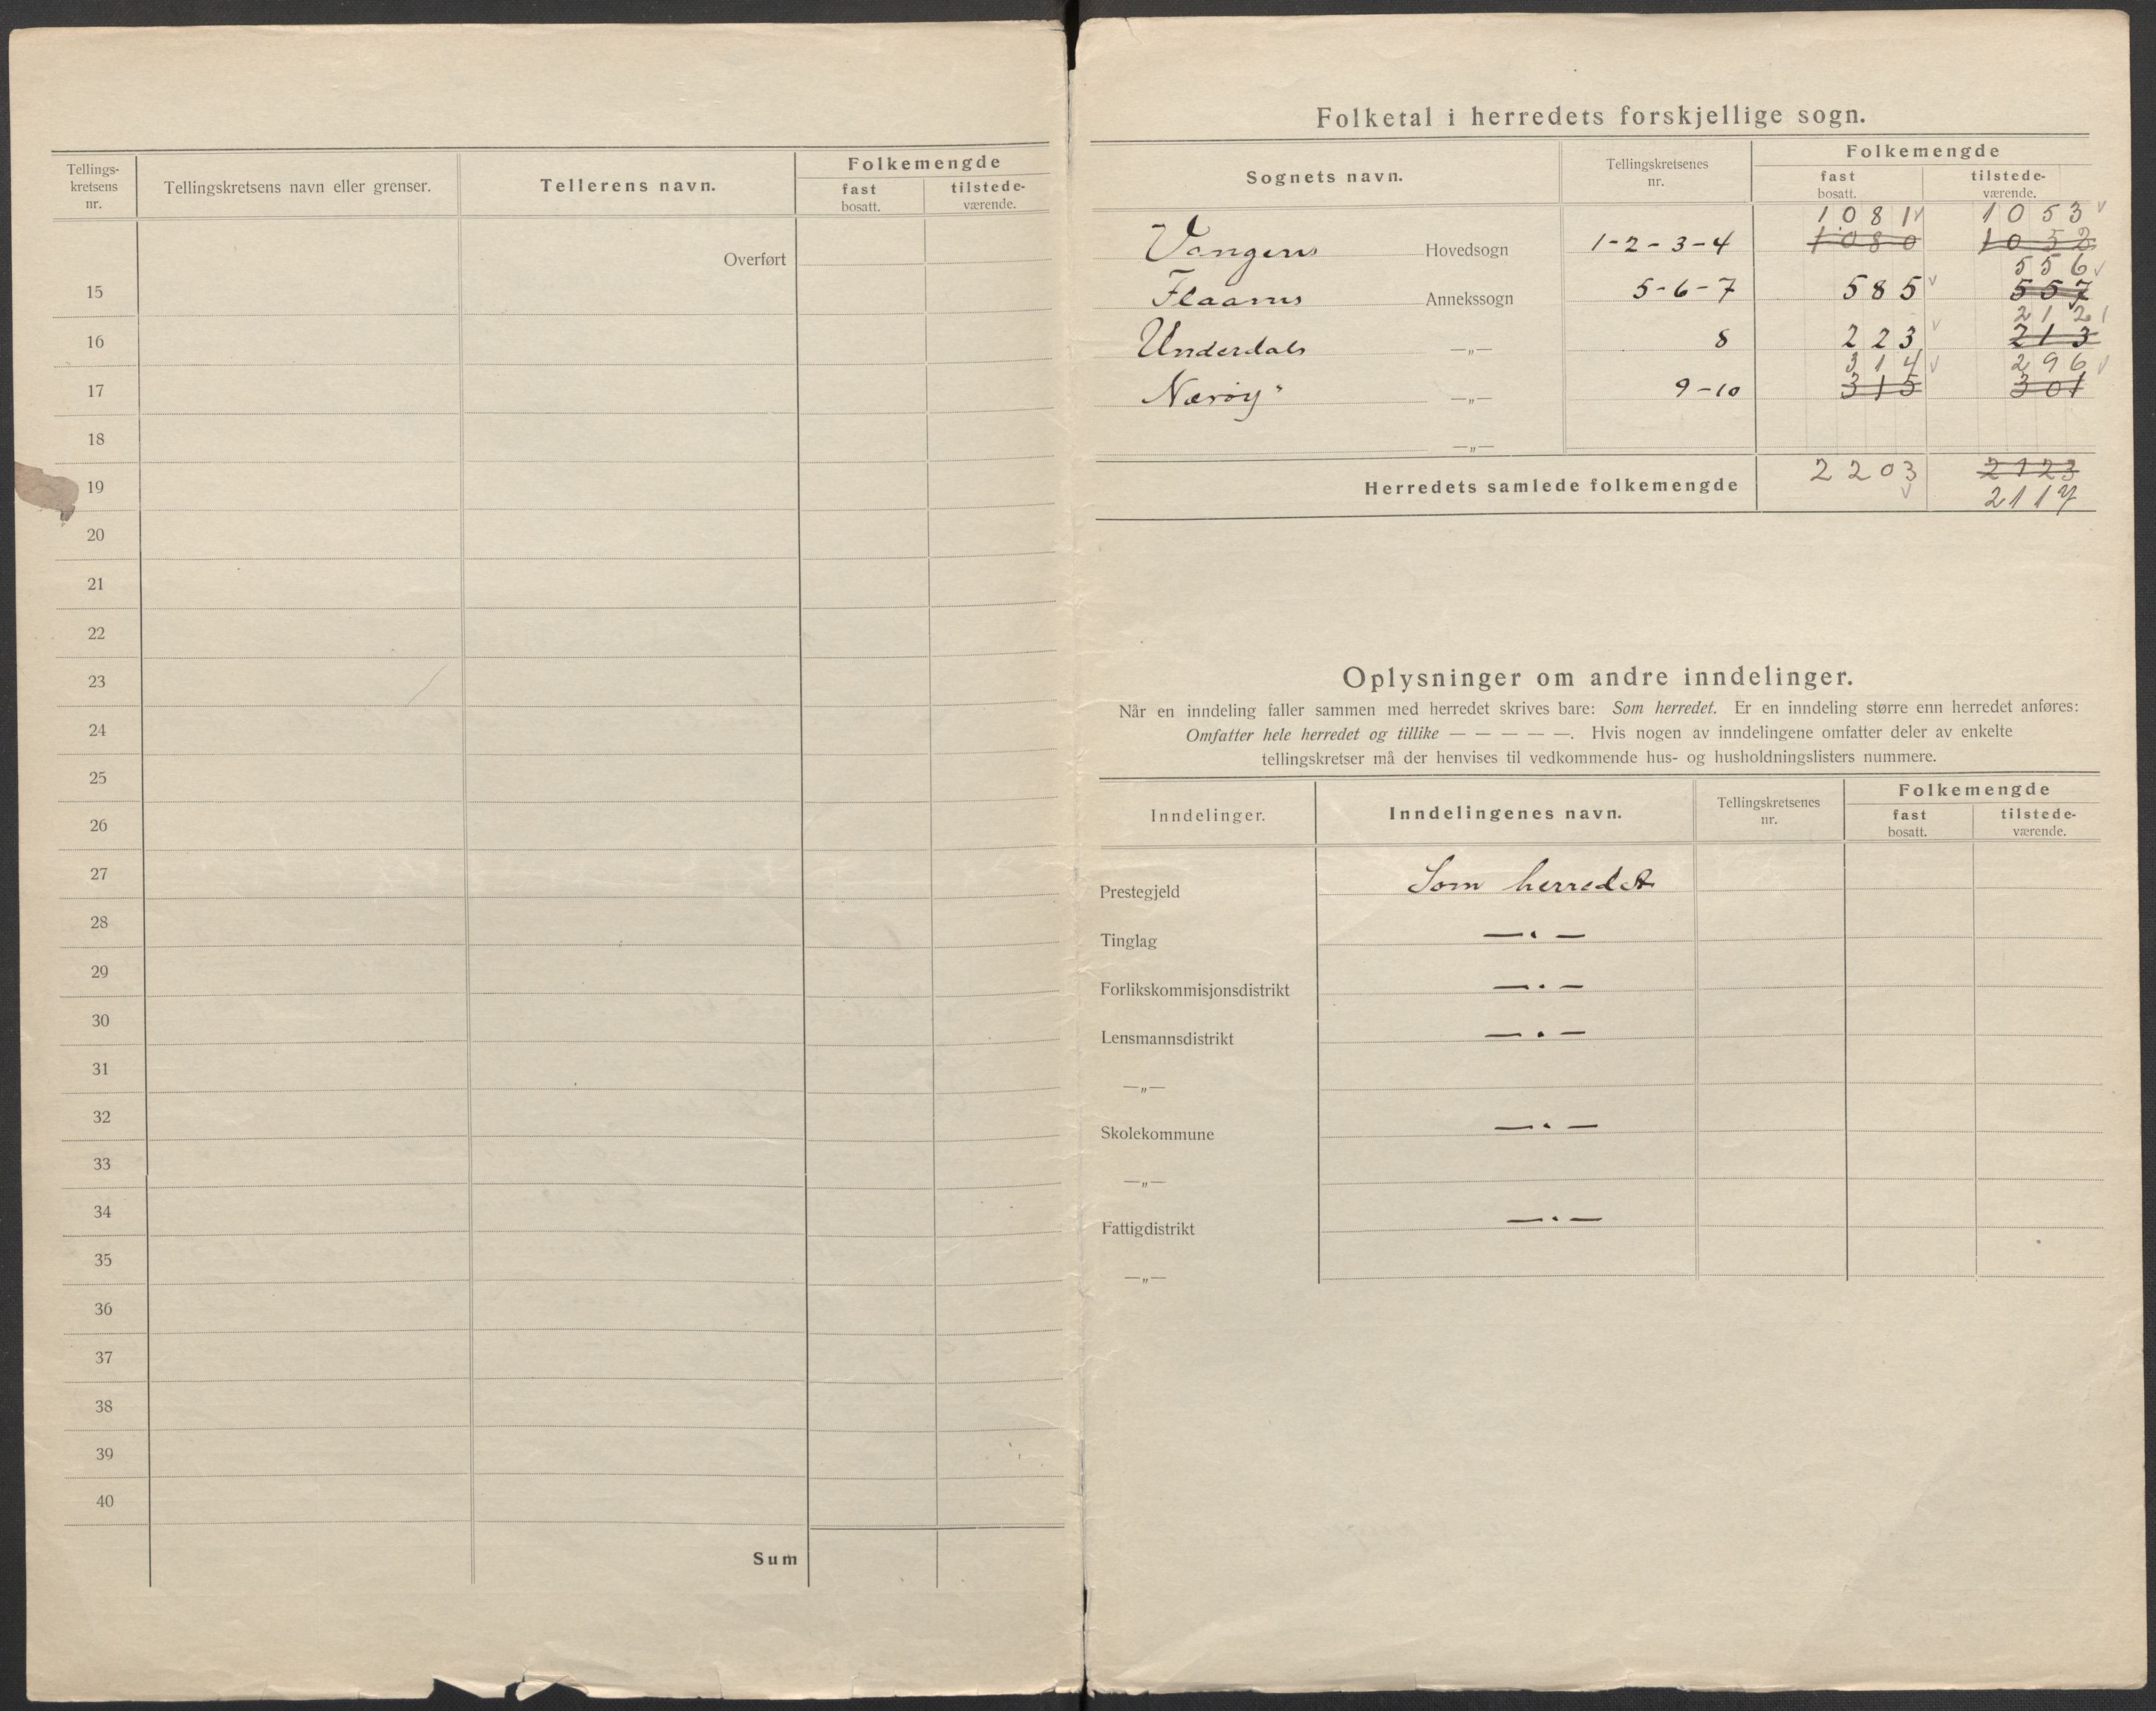 Tellings-
kretsens
nr.
Tellingskretsens navn eller grenser.
Tellerens navn.
Folkemengde
fast
bosatt.
tilstede-
værende.
Overført
15
16
17
18
19
20
21
22
23
24
25
26
27
28
29
30
31
32
33
34
35
36
37
38
39
40
Sum
Folketal i herredets forskjellige sogn.
Sognets navn.
Tellingskretsenes
nr.
Folkemengde
fast
bosatt.
tilstede-
værende.
1081 1053
Vangens Hovedsogn 1-2-3-4 1080 1052
556
Flaams Annekssogn 5-6-7 585 557
212
Underdals —„— 8 223 213
314 296
Nærøy" —„— 9-10 315 301
—„—
Herredets samlede folkemengde 2203 2123
2117
Oplysninger om andre inndelinger.
Når en inndeling faller sammen med herredet skrives bare: Som herredet. Er en inndeling større enn herredet anføres:
Omfatter hele herredet og tillike — — — — —. Hvis nogen av inndelingene omfatter deler av enkelte
tellingskretser må der henvises til vedkommende hus- og husholdningslisters nummere.
Inndelinger.
Inndelingenes navn.
Tellingskretsenes
nr.
Folkemengde
fast
bosatt.
tilstede-
værende.
Prestegjeld Som herredet
Tinglag —"—
Forlikskommisjonsdistrikt —"—
Lensmannsdistrikt —"—
—„—
Skolekommune —"—
—„—
Fattigdistrikt —"—
—„—